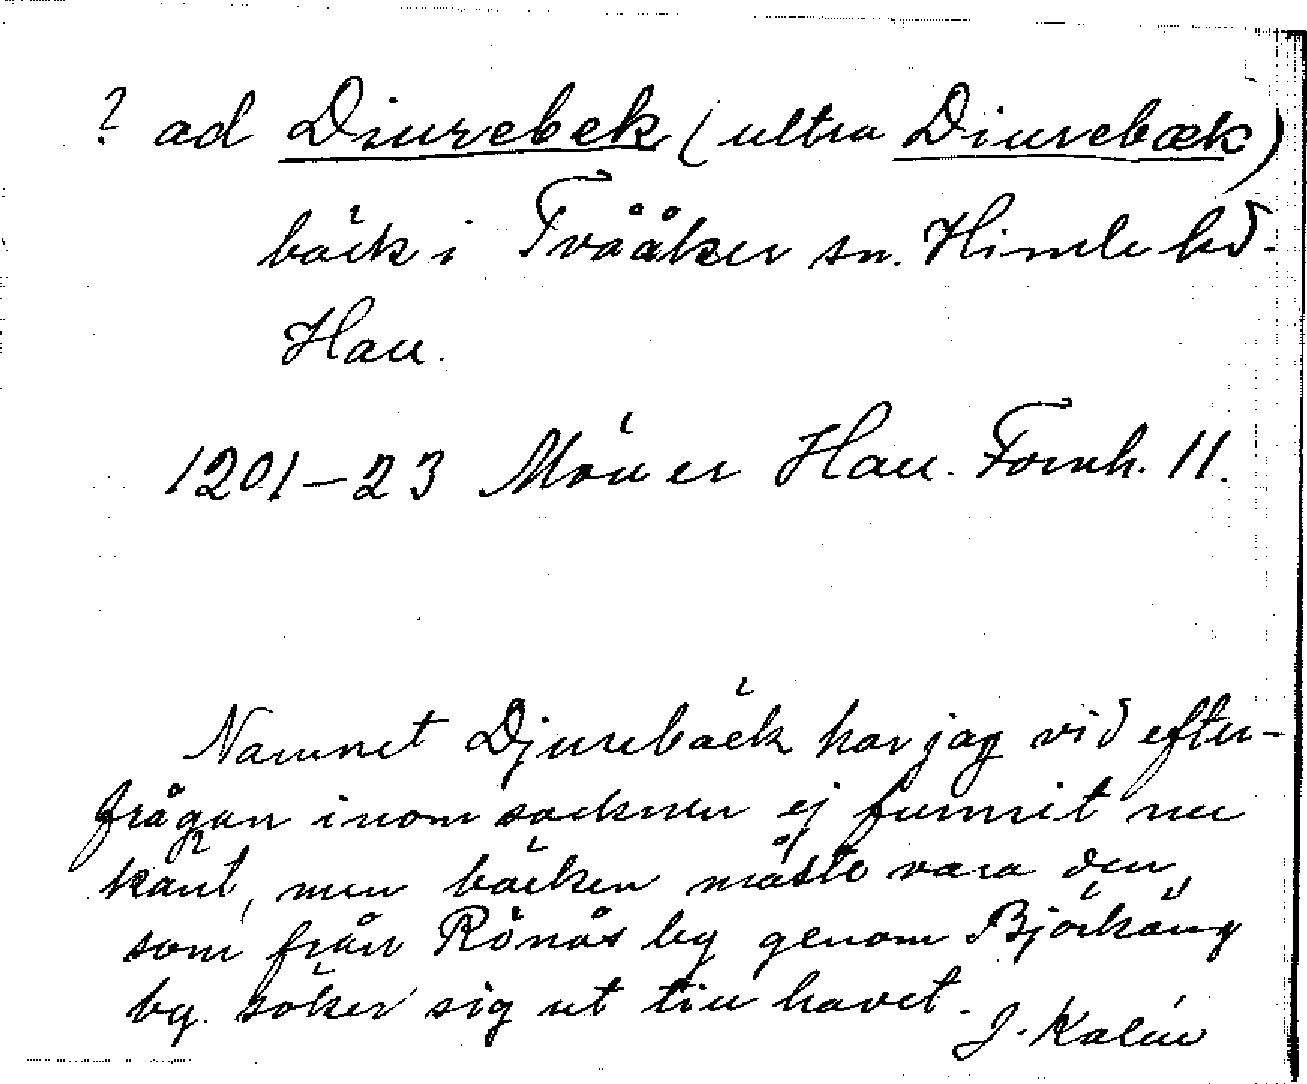 ? ad Diurebek (ultra Diurebæk)
bäck i Tvååker sn. Himle hd.
Hall.
1201–23 Möller Hall. Fornh. 11.
Namnet Djurebäck har jag vid efter-
frågan inom socknen ej funnit nu
känt, men bäcken måste vara den,
som från Rönås by genom Björkäng
by. söker sig ut till havet.
J. Kalén